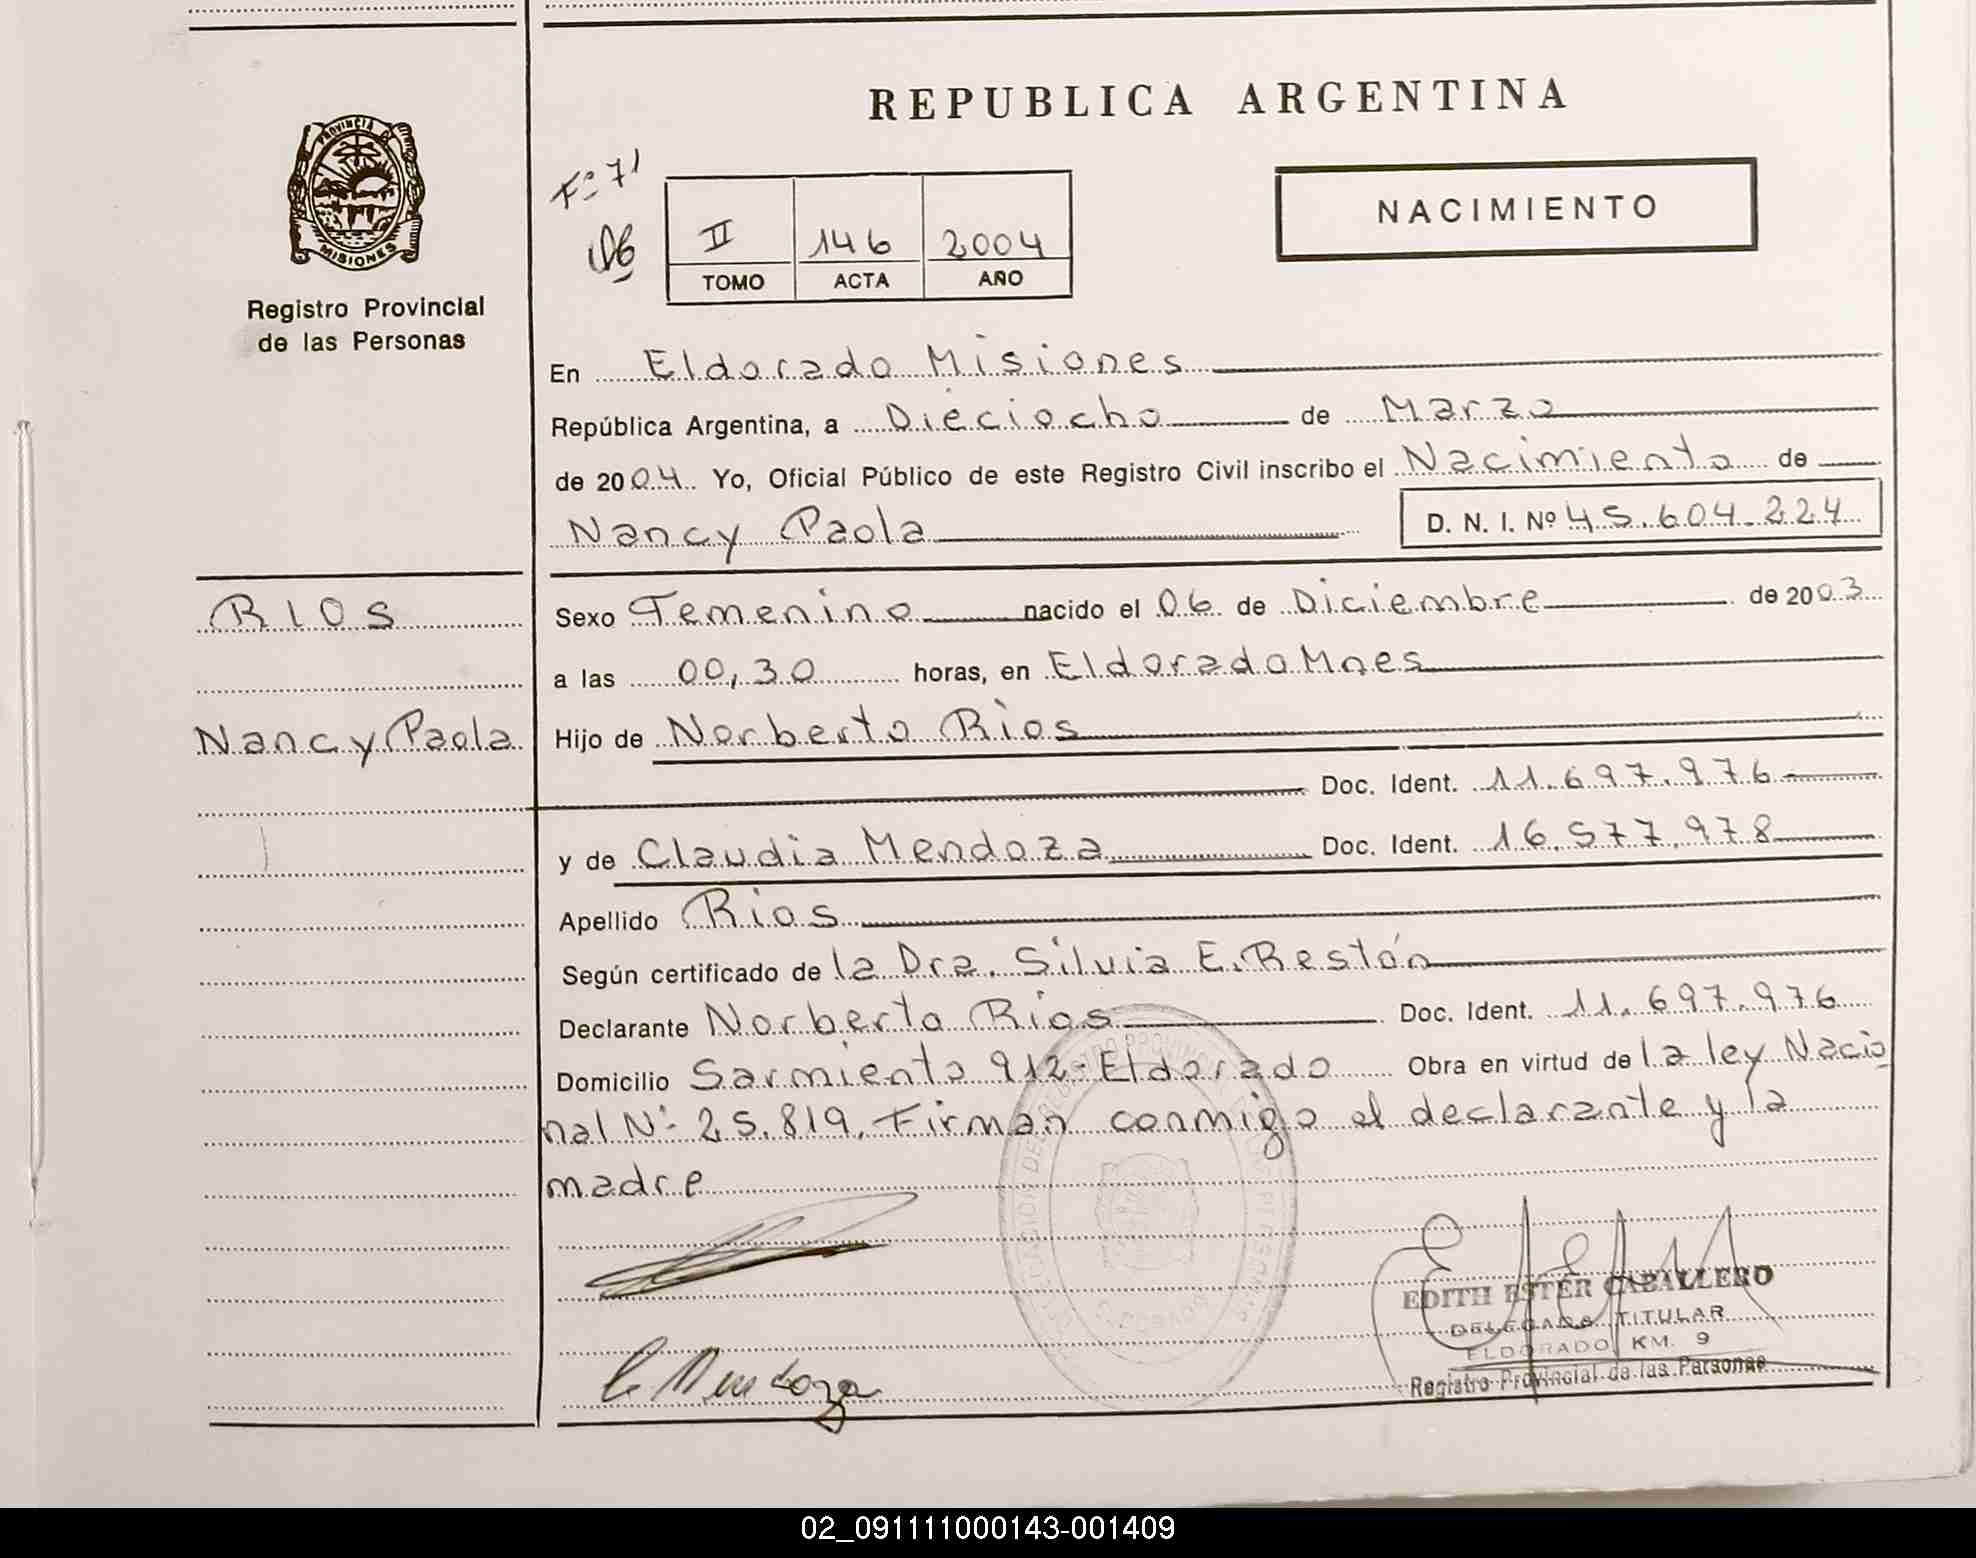 REPUBLICA ARGENTINA
PROVINCIA DE
MISIONES
Registro Provincial
de las Personas
Fº 71
NACIMIENTO
II 146 2004
TOMO ACTA AÑO
En Eldorado Misiones
República Argentina, a Dieciocho de Marzo
de 2004 Yo, Oficial Público de este Registro Civil inscribo el Nacimiento de
Nancy Paola D. N. I. Nº 45.604.224
RIOS
Sexo Femenino nacido el 06 de Diciembre de 2003
a las 00,30 horas, en Eldorado Mnes
Nancy Paola
Hijo de Norberto Rios
Doc. Ident. 11.697.976
y de Claudia Mendoza Doc. Ident. 16.577.978
Apellido Rios
Según certificado de la Dra. Silvia E. Restón
Declarante Norberto Rios Doc. Ident. 11.697.976
Domicilio Sarmiento 912-Eldorado Obra en virtud de la ley Nacio
nal Nº 25.819. Firman conmigo el declarante y la
madre
EDITH ESTER CABALLERO
DELEGADA TITULAR
ELDORADO KM. 9
Registro Provincial de las Personas
C. Mendoza
02_091111000143-001409